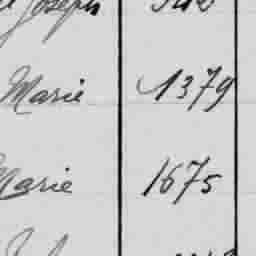 Joseph
Marie 1379
Marie 1675